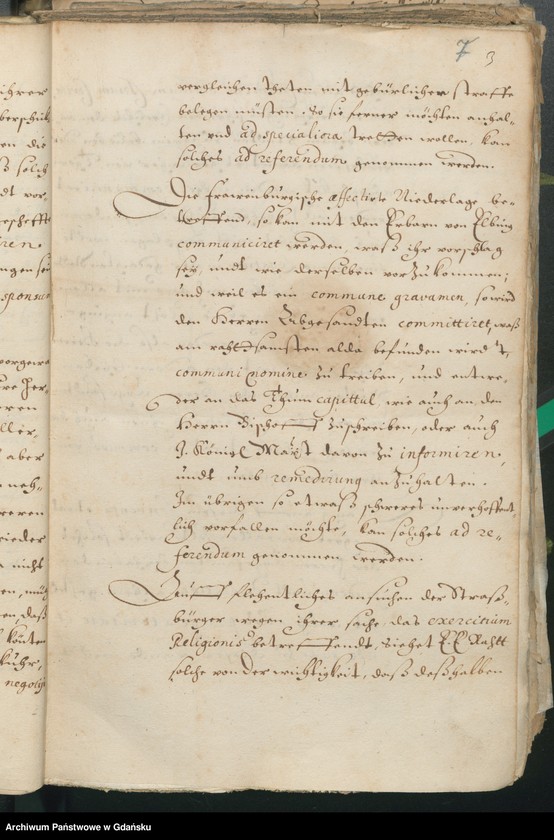 7 3
vergleichen theten mit gebürlicher straffe
belegen müsten. So sie ferner möchten anhal-
ten vnd ad specialiora tretten wollen, kan
solches ad referendum genommen werden.
Die frawenburgische affectirte Niederlage be-
treffend, so kan mit den Erbarn von Elbing
communiciret werden, waß ihr vorschlag
sey, undt wie derselben vorzukommen;
und weil es ein commune gravamen, so wird
den Herren Abgesandten committiret, waß
am rahtsamsten alda befunden wird,
communi nomine zu treiben, und entwe-
der an das Thum capittul, wie auch an den
Herrn Bischoff zuschreiben, oder auch
I. Königl. Maÿst davon zu informiren,
undt umb remedirung anzuhalten.
Im übrigen so etwaß schweres unverhoffent-
lich vorfallen möchte, kan solches ad re-
ferendum genommen werden.
Auff flehentliches ansuchen der Straß-
bürger wegen ihrer sache, das exercitium
Religionis betreffendt, siehet EE Raht
solche von der wichtigkeit, daß deßhalben
Archiwum Państwowe w Gdańsku